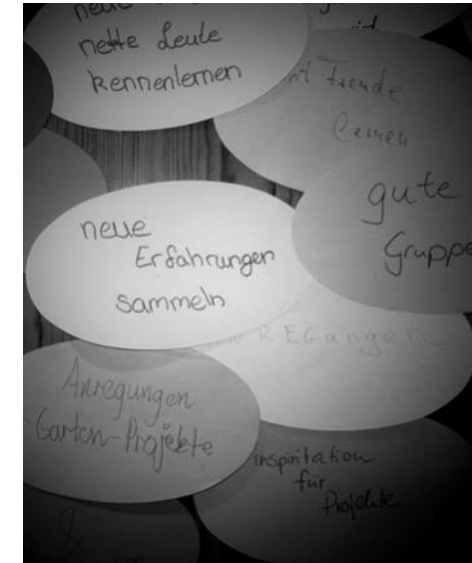 neue
nette Leute
kennenlernen
mit Freude
lernen
gute
Gruppe
neue
Erfahrungen
sammeln
ANREGungen
Anregungen
Garten-Projekte
inspiritation
für
Projekte
&